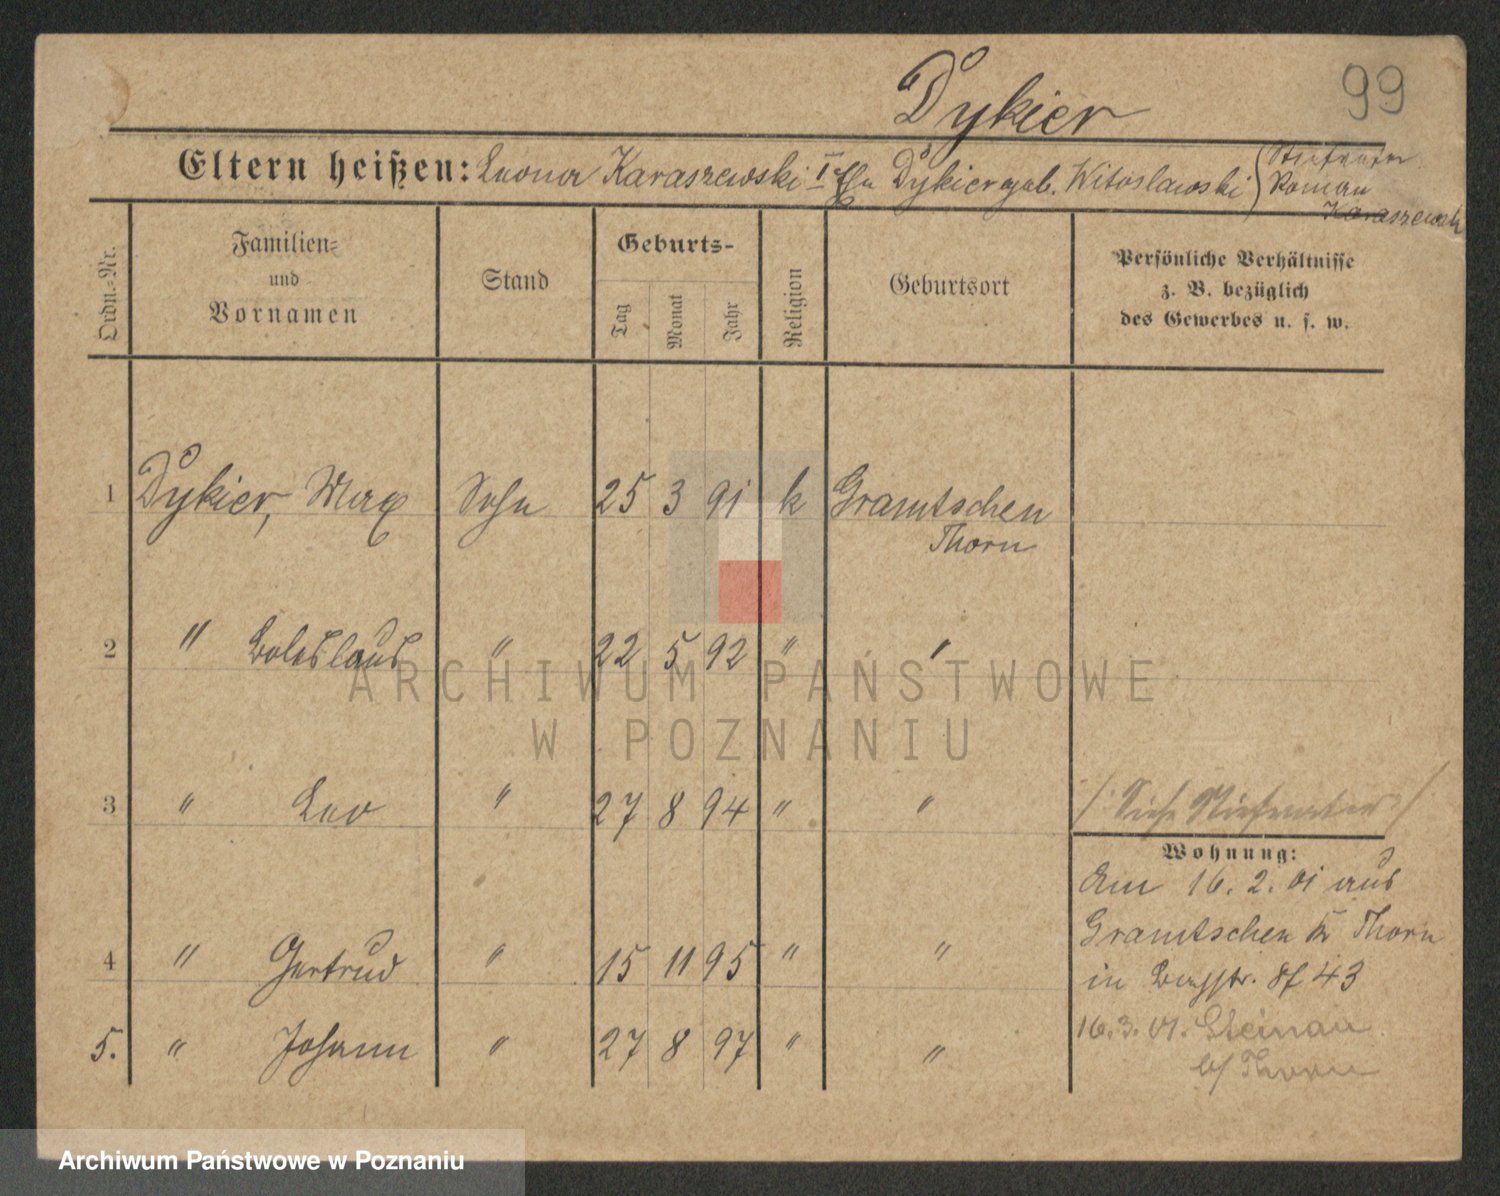 99
Dykier
Eltern heißen: Leonor Karaszewski I Ehe Dykier geb. Witoslawski (Stiefvater
Roman
Karaszewski
Ordn.-Nr.
Familien-
und
Vornamen
Stand
Geburts-
Tag
Monat
Jahr
Religion
Geburtsort
Persönliche Verhältnisse
z. B. bezüglich
des Gewerbes u. s. w.
1 Dykier, Max Sohn 25 3 91 k Gramtschen
Thorn
2 " Boleslaus " 22 5 92 " "
ARCHIWUM PAŃSTWOWE
W POZNANIU
3 " Leo " 27 8 94 " "
/ Siehe Stiefvater /
Wohnung:
Am 16. 2. 01 aus
Gramtschen Kr Thorn
in 43
16. 3. 01. Steinau
b/ Thorn
4 " Gertrud " 15 11 95 " "
5. " Johann " 27 8 97 " "
Archiwum Państwowe w Poznaniu